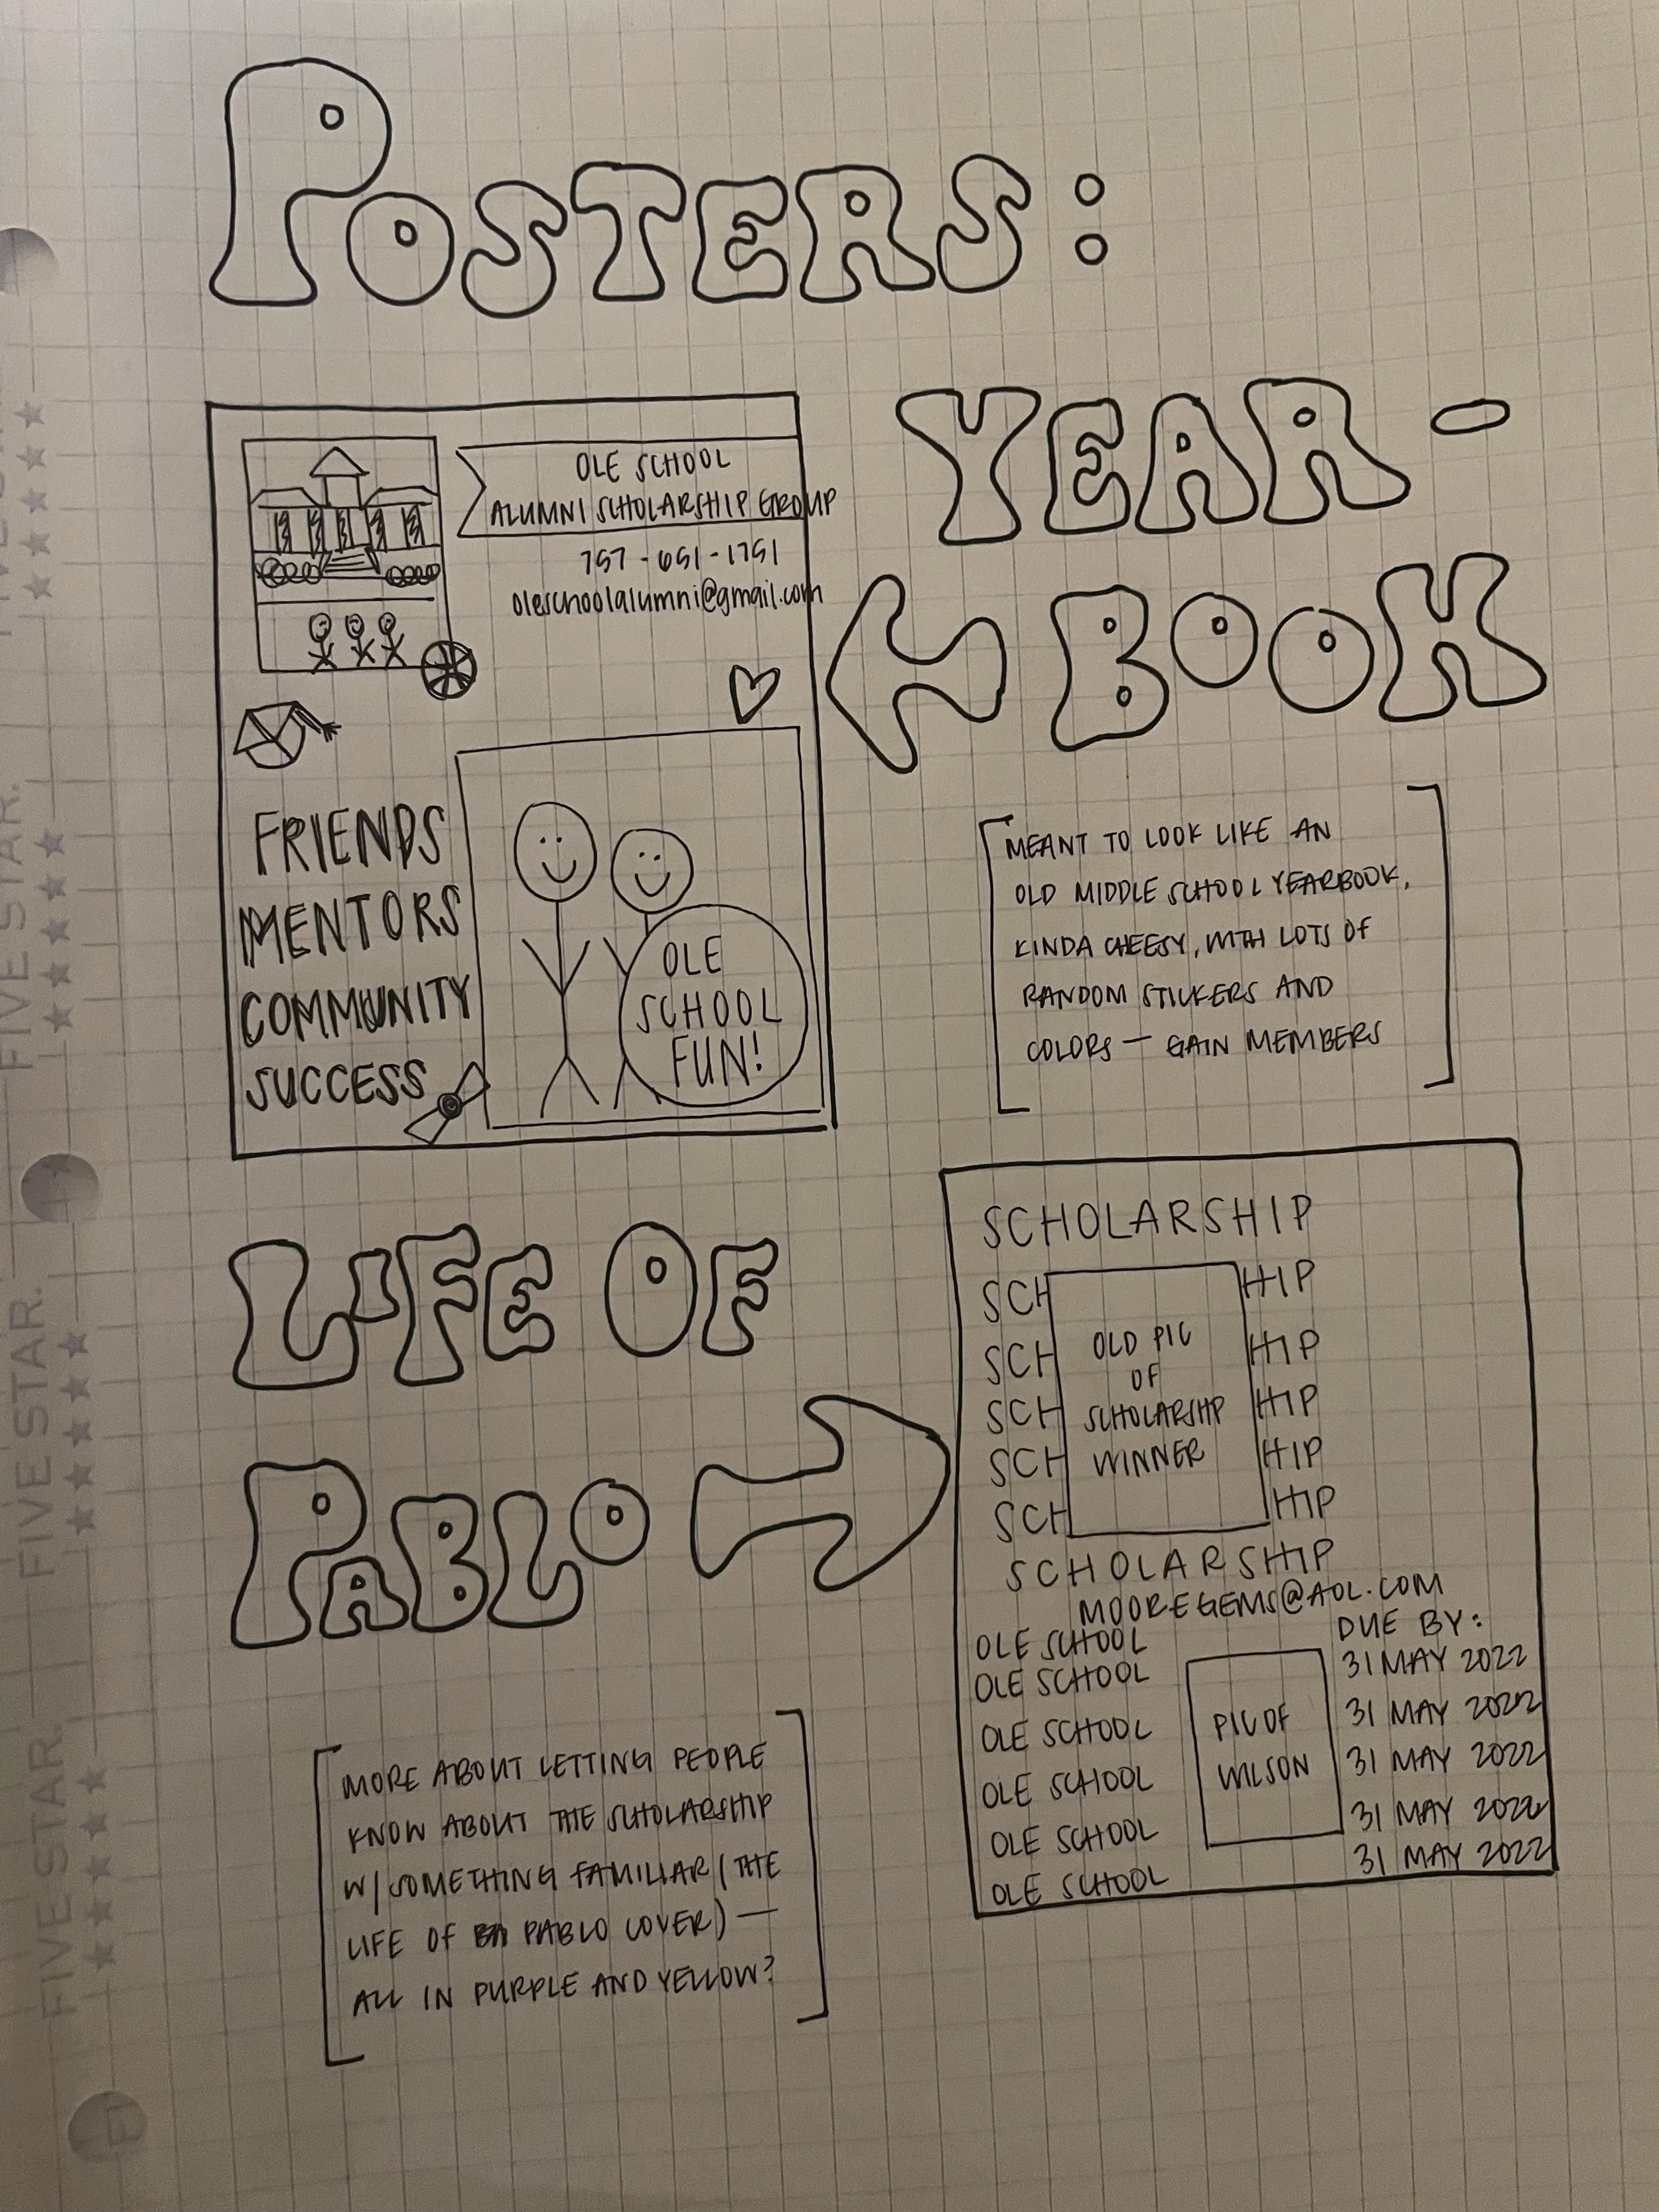 POSTERS:
YEAR-
BOOK
OLE SCHOOL
ALUMNI SCHOLARSHIP GROUP
757-651-1751
oleschoolalumni@gmail.com
FRIENDS
MENTORS
COMMUNITY
SUCCESS
OLE
SCHOOL
FUN!
MEANT TO LOOK LIKE AN
OLD MIDDLE SCHOOL YEARBOOK,
KINDA CHEESY, WITH LOTS OF
RANDOM STICKERS AND
COLORS — GAIN MEMBERS
LIFE OF
PABLO
MORE ABOUT LETTING PEOPLE
KNOW ABOUT THE SCHOLARSHIP
W/ SOMETHING FAMILIAR (THE
LIFE OF PABLO COVER) —
ALL IN PURPLE AND YELLOW?
SCHOLARSHIP
SCH HIP
SCH HIP
SCH HIP
SCH HIP
SCH HIP
OLD PIC
OF
SCHOLARSHIP
WINNER
SCHOLARSHIP
MOOREGEMS@AOL.COM
OLE SCHOOL
OLE SCHOOL
OLE SCHOOL
OLE SCHOOL
OLE SCHOOL
OLE SCHOOL
PIC OF
WILSON
DUE BY:
31 MAY 2022
31 MAY 2022
31 MAY 2022
31 MAY 2022
31 MAY 2022
FIVE STAR.
FIVE STAR.
FIVE STAR.